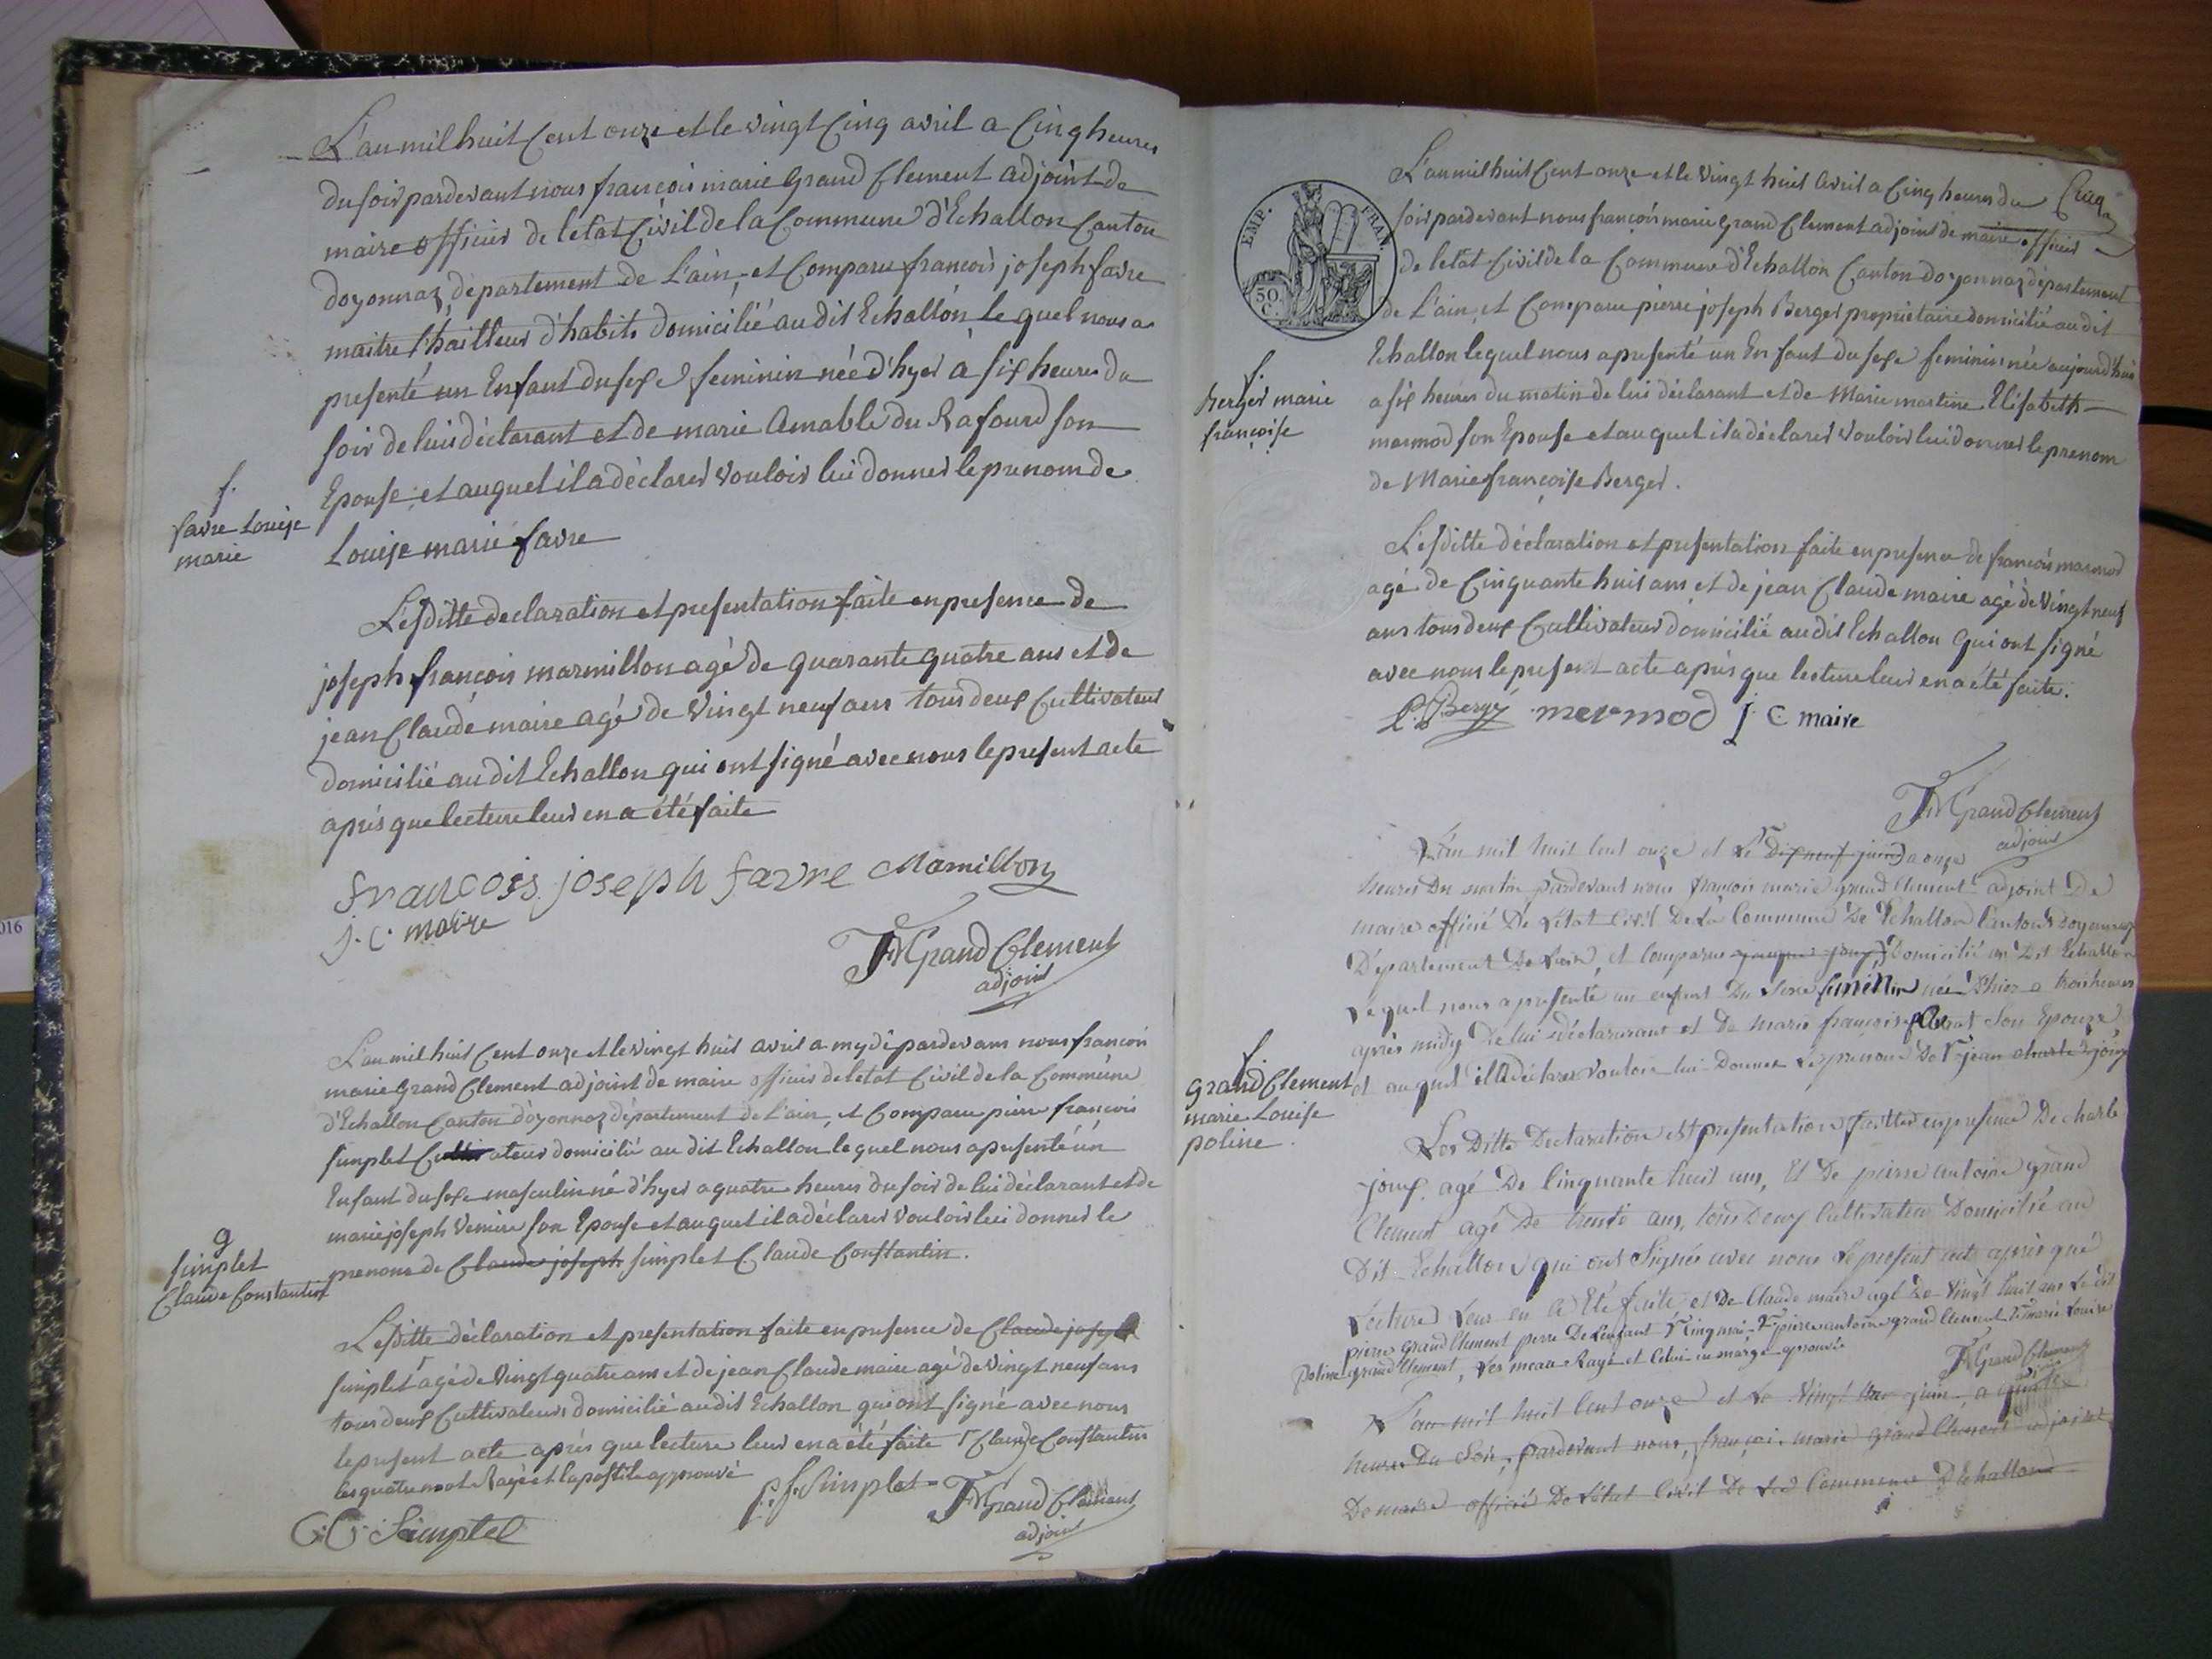 L'an mil huit Cent onze et le vingt Cinq avril a Cinq heures
du soir pardevant nous françois marie Grand Clement adjoint de
maire officier de letat Civil de la Commune d'Echallon Canton
doyonnaz departement de L'ain, et Comparu françois joseph favre
maitre thailleur d'habits domicilié au dit Echallon Le quel nous a
presenté un Enfant du sexe feminin née d'hyer à six heures du
soir de lui déclarant et de marie Amable du Rafourd son
Epouse et auquel il a déclaré vouloir lui donner le prenom de
Louise marie favre
f.
favre Louise
marie
Lesditte declaration et presentation faite en presence de
joseph françois marmillon agé de quarante quatre ans et de
jean Claude maire agé de vingt neuf ans tous deux Cultivateur
domicilié au dit Echallon qui ont signé avec nous le present acte
après que lecture leur en a été faite
françois joseph favre Mamillon
j. c. maire
FM Grand Clement
adjoint
L'an mil huit Cent onze et le vingt huit avril a mydi pardevans nous françois
marie Grand Clement adjoint de maire officier de letat Civil de la Commune
d'Echallon Canton d'oyonnaz département de L'ain, et Comparu pierre françois
simplet Cultivateur domicilié au dit Echallon le quel nous a presenté un
Enfant du sexe masculin né d'hyer a quatre heures du soir de lui déclarant et de
marie joseph Vernire son Epouse et auquel il a déclaré vouloir lui donner le
prenom de Claude joseph simplet Claude Constantin.
g
simplet
Claude Constantin
Lesditte déclaration et presentation faite en presence de Claude joseph
simplet agé de vingt quatre ans et de jean Claude maire agé de vingt neuf ans
tous deux Cultivateurs domicilié au dit Echallon qui ont signé avec nous
le present acte après que lecture leur en a été faite Claude Constantin
les quatre mot Rayé et la postile approuvé
p. f. Simplet FM Grand Clement
adjoint
C. C. Simplet
EMP. FRAN.
50 C.
L'an mil huit Cent onze et le vingt huit avril a Cinq heures du
soir pardevant nous françois marie Grand Clement adjoint de maire officier
de letat Civil de la Commune d'Echallon Canton doyonnaz département
de L'ain, et Comparu pierre joseph Berger propriétaire domicilié au dit
Echallon lequel nous a presenté un Enfant du sexe feminin née aujourd'hui
a six heures du matin de lui déclarant et de Marie martine Elisabeth
mermod son Epouse et auquel il a déclaré vouloir lui donner le prenom
de Marie françoise Berger.
f.
Berger marie
françoise
Lesditte déclaration et presentation faite en presence de françois marmod
agé de Cinquante huit ans et de jean Claude maire agé de vingt neuf
ans tous deux Cultivateur domicilié au dit Echallon qui ont signé
avec nous le present acte après que lecture leur en a été faite.
P. J. Berger mermod J C maire
FM Grand Clement
adjoint
L'an mil huit Cent onze et Le dix neuf juin a onze
heures Du matin pardevant nous françois marie grand Clement adjoint De
maire officié De Letat Civil De La Commune De Echallon Canton doyonnaz
Departement De Lain, et Comparu jouy Domicilié au Dit Echallon
Lequel nous a presenté un enfant Du sexe feminin née Dhier a trois heures
après midy De lui déclararant et De marie françoise son Epouse
et auquel il a déclaré vouloir lui Donner Le prenom De jean charle jouy
f.
Grand Clement
marie Louise
poline.
Les Ditte Declaration et presentation faitte en presence De charle
jouy agé De Cinquante huit ans, Et De pierre antoine grand
Clement agé De trente ans, tous Deux Cultivateur Domicilié au
Dit Echallon qui ont Signés avec nous Le present acte après que
Lecture Leur en a Eté faite, et De Claude maire agé De vingt huit ans Le dit
pierre Grand Clement perre De Lenfant cinq mai pierre antoine grand Clement marie Louise
poline grand Clement, Les meau Rayé et Celui en marge aprouvée
FM Grand Clement
L'an mil huit Cent onze et Le vingt juin, a quatre
heures Du Soir, pardevant nous, françois marie grand Clement adjoint
De maire officié De Letat Civil De La Commune D'Echallon